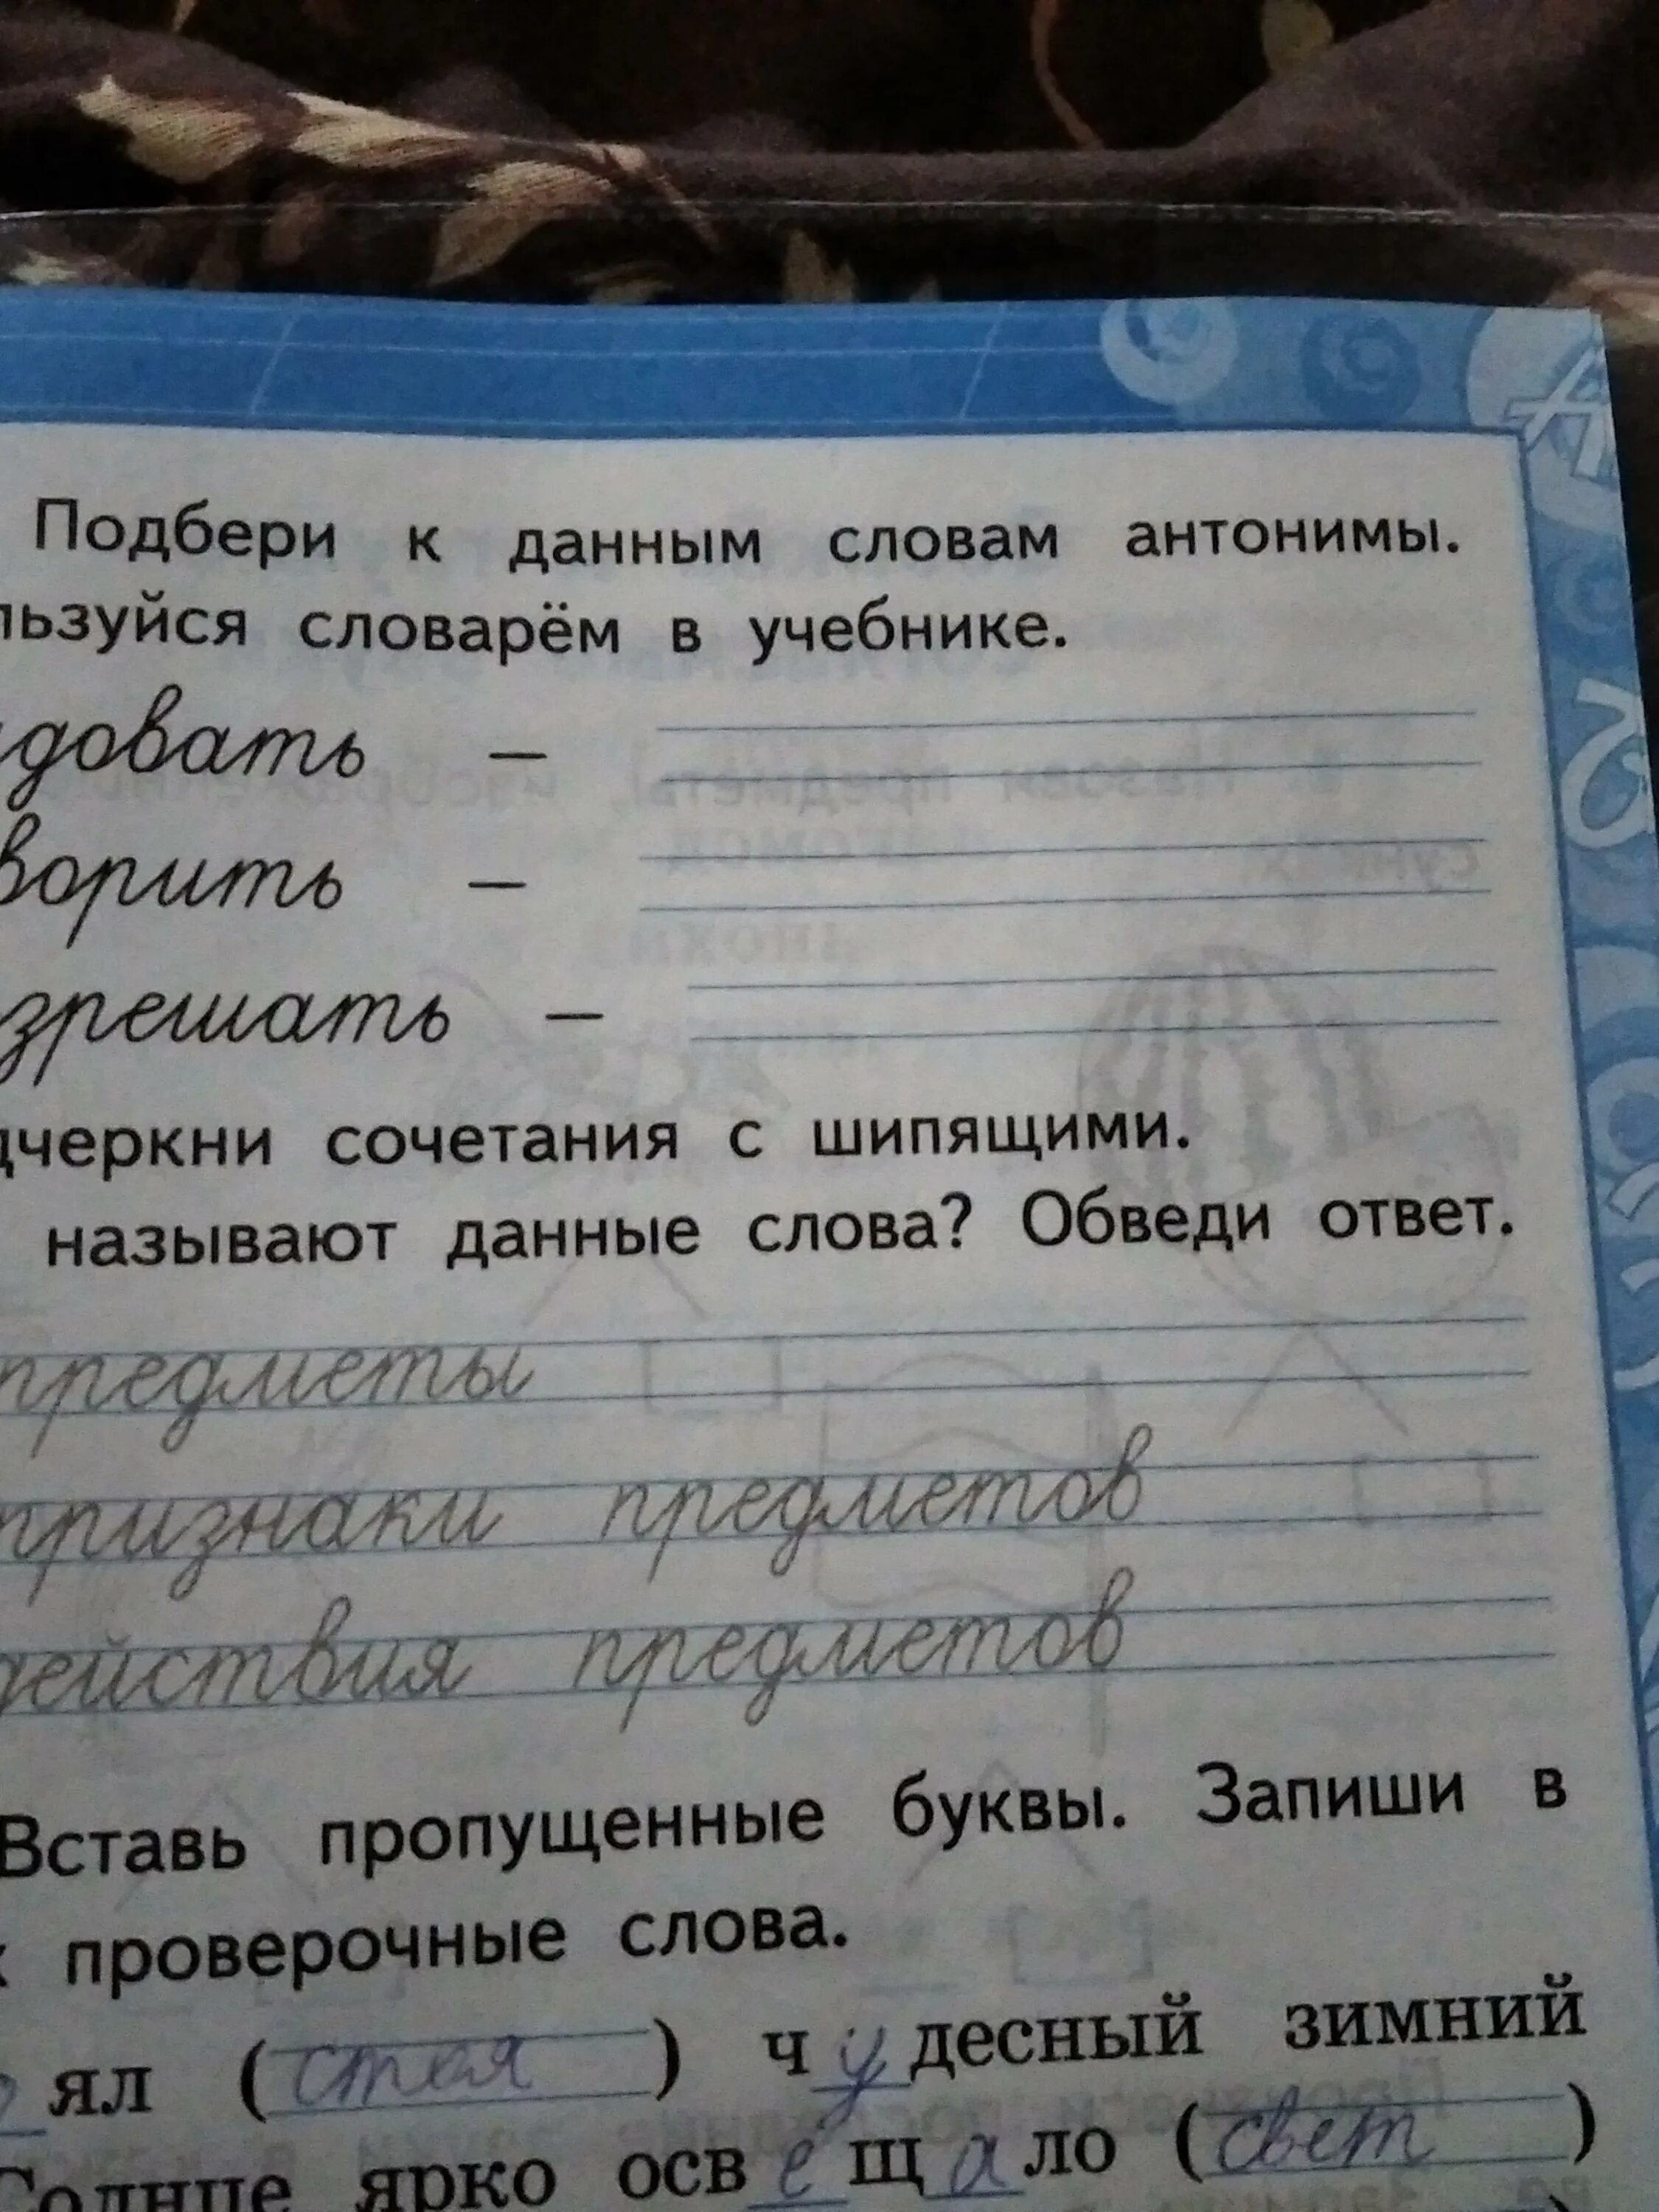 Подбери к данным словам антонимы.
льзуйся словарём в учебнике.
довать –
ворить –
зрешать –
дчеркни сочетания с шипящими.
называют данные слова? Обведи ответ.
предметы
признаки предметов
действия предметов
Вставь пропущенные буквы. Запиши в
проверочные слова.
ял (стоя) чудесный зимний
Солнце ярко освещало (свет)